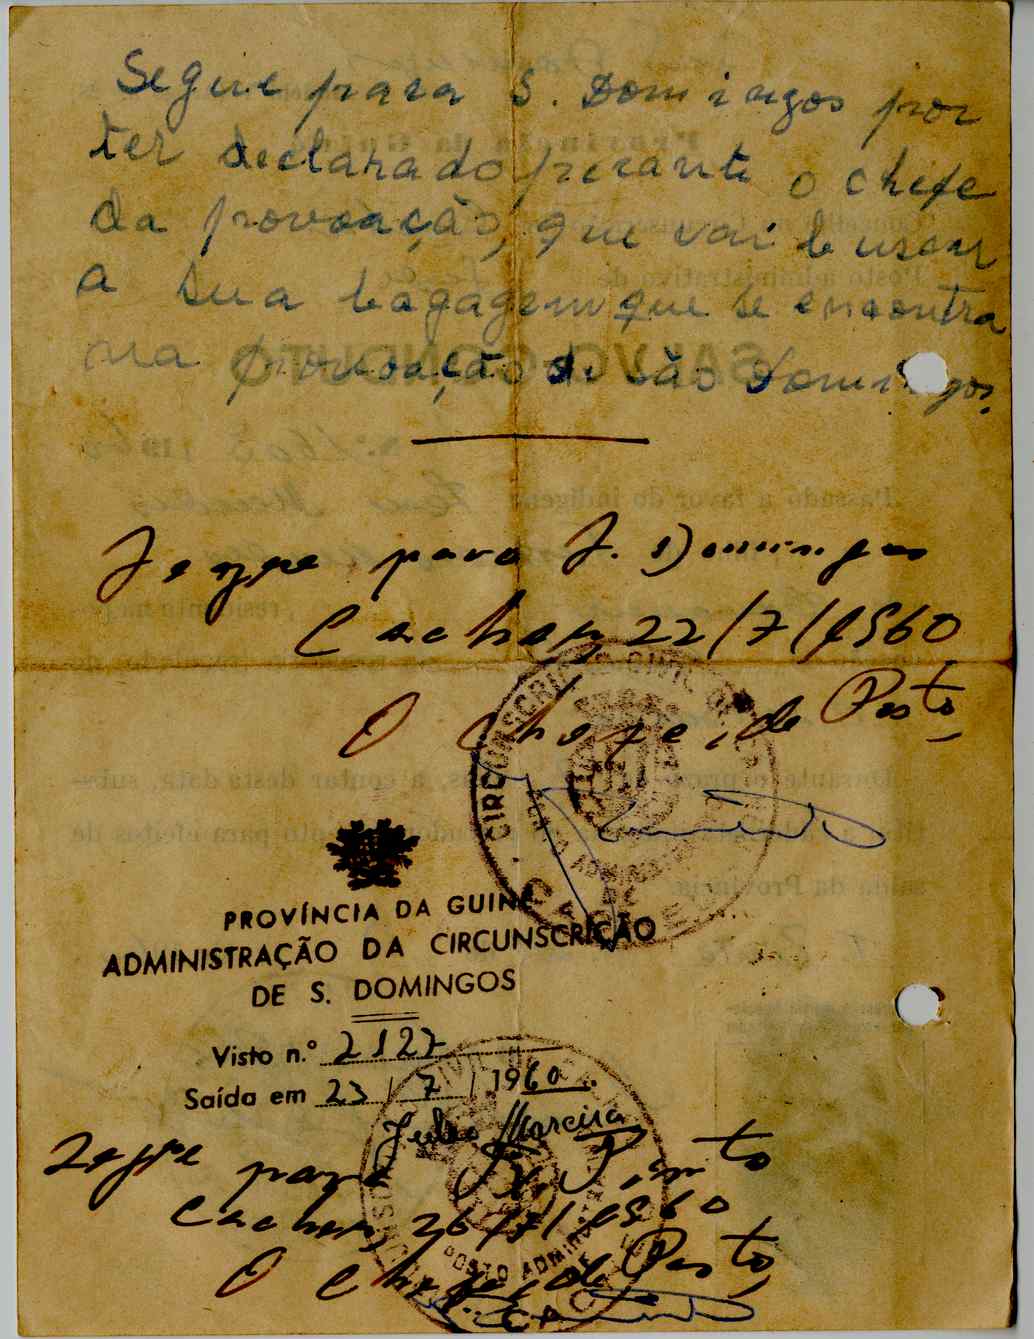 Segue para S. Domingos por
ter declarado perante o chefe
da provoação, que vai buscar
a sua bagagem que se encontra
na provoação de são Domingos.
Segue para S. Domingos
Cacheu, 22/7/1960
O Chefe de Posto,
CIRCUNSCRIÇÃO CIVIL DE
POSTO ADMINISTRATIVO DE
PROVÍNCIA DA GUINÉ
ADMINISTRAÇÃO DA CIRCUNSCRIÇÃO
DE S. DOMINGOS
Visto n.º 2127
Saída em 23 / 7 / 1960.
Julio Moreira
Segue para P. Pinto
Cacheu, 26/7/1960
POSTO ADMINIS
O Chefe de Posto,